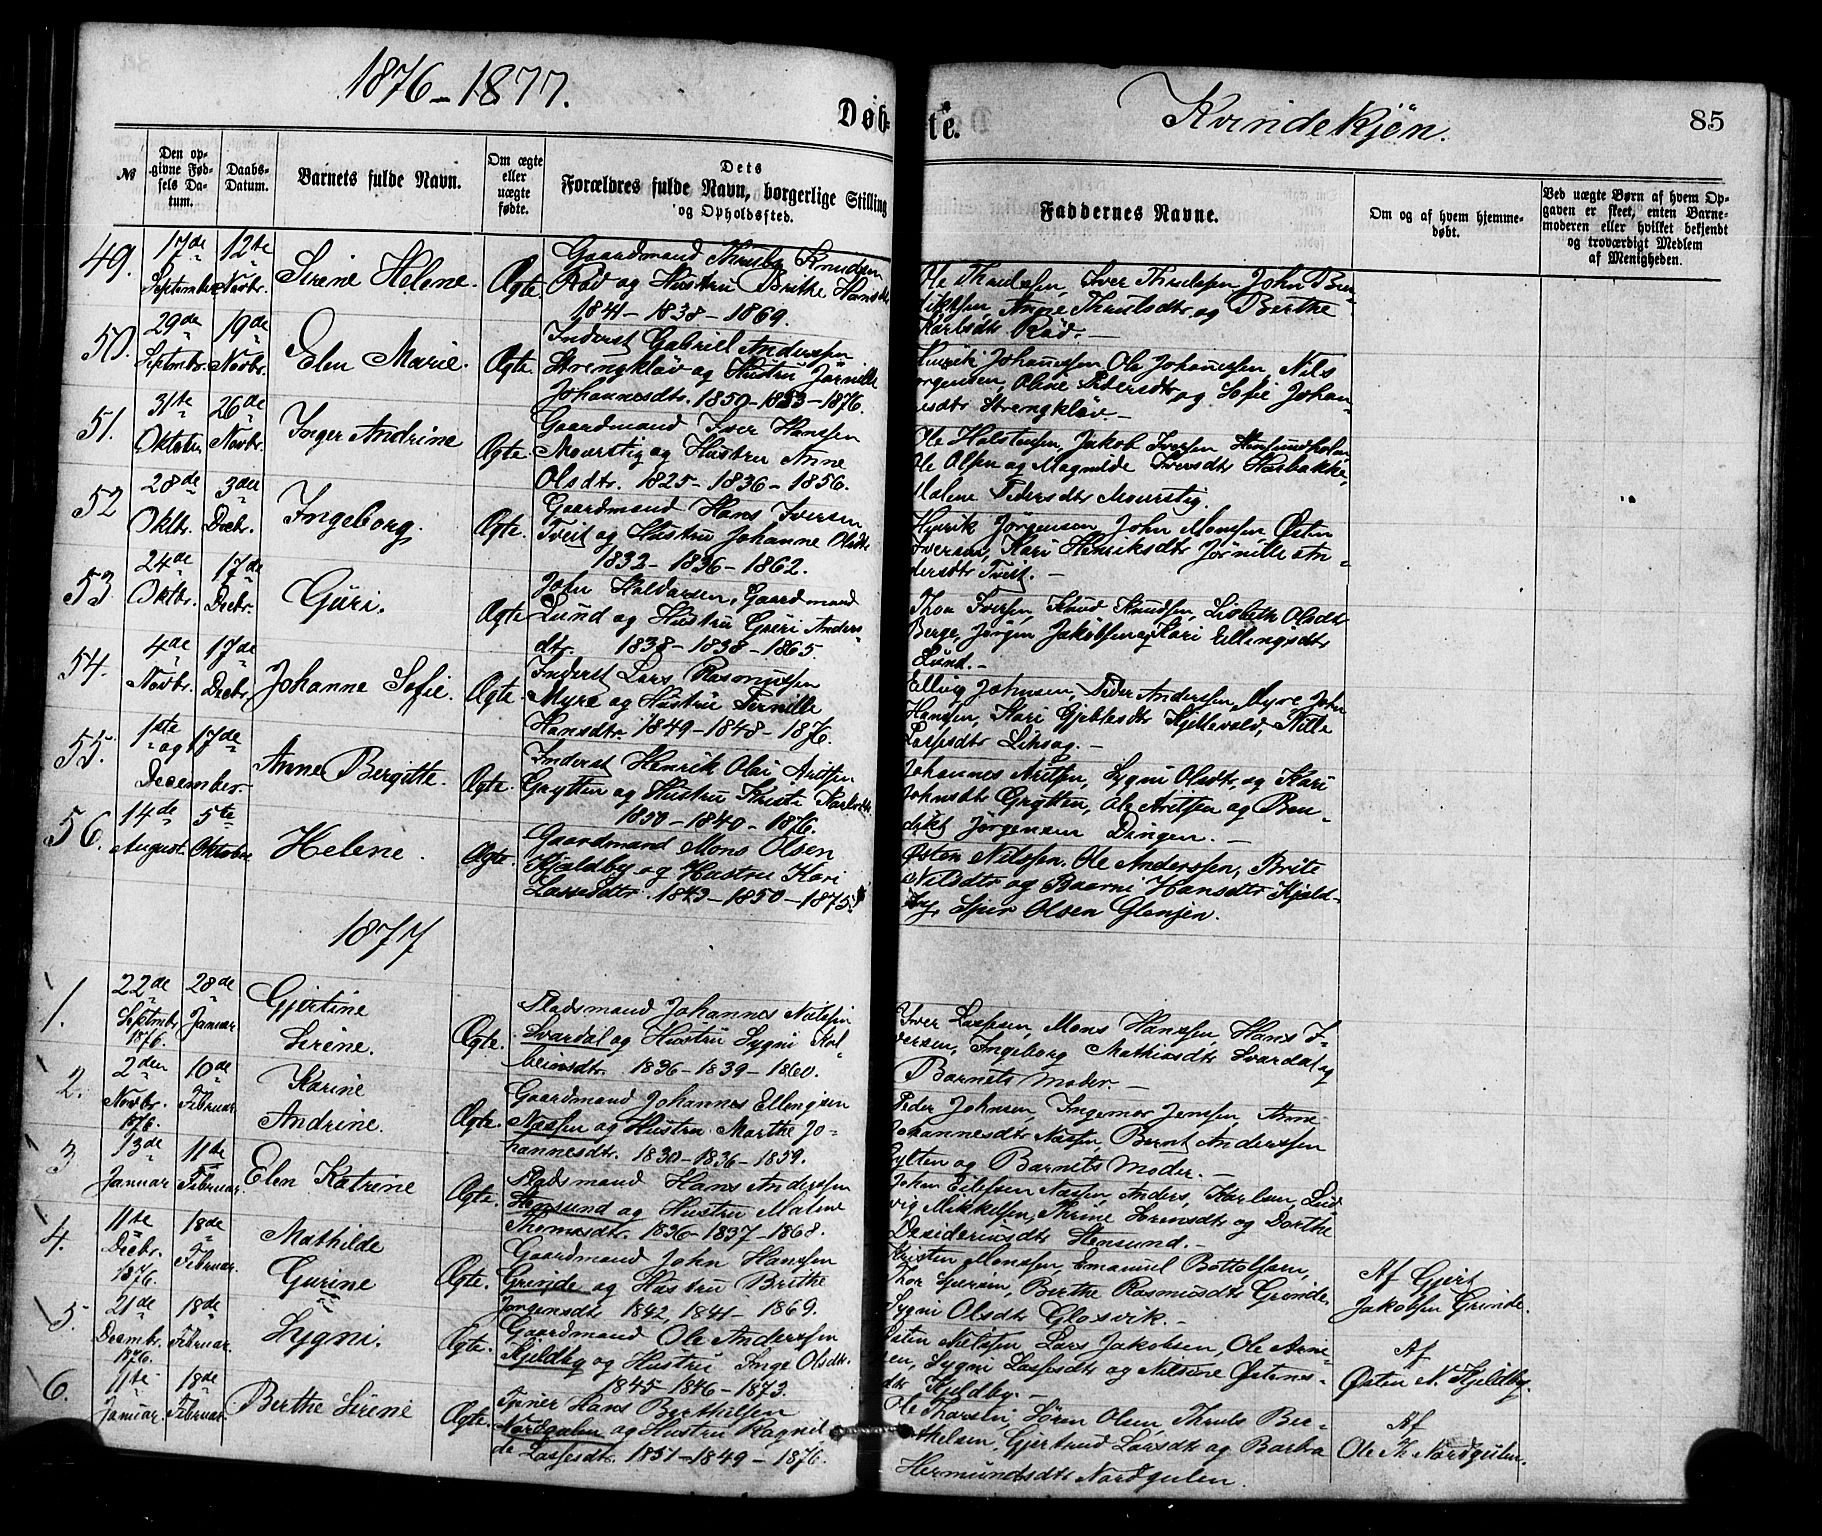 1876-1877.
Døbte.
Kvindekjøn.
85
№
Den opgivne Fødsels Datum.
Daabs-Datum.
Barnets fulde Navn.
Om ægte eller uægte fødte.
Dets Forældres fulde Navn, borgerlige Stilling og Opholdssted.
Faddernes Navne.
Om og af hvem hjemmedøbt.
Ved uægte Børn af hvem Opgaven er skeet, enten Barnemoderen eller hvilket bekjendt og troværdigt Medlem af Menigheden.
49. 17de September 12te Novbr. Sirine Helene. Ægte.
Gaardmand Knudsen
Rød og Hustru Brithe Hansdtr
1841 - 1838 - 1869.
Ole Thrulssen, Iver Thrulssen, John Ben-
dikssen, Anne Thrulsdtr og Berthe
Karlsdtr Rød.-
50. 29de Septmbr. 19de Novbr. Elen Marie. Ægte.
Inderst Gabriel Anderssen
Strengkløv og Hustru Jørnille
Johannesdtr. 1850 - 1853 - 1876.
Henrik Johannessen, Ole Johannessen, Nils
Jørgensen, Oline Pedersdtr og Sofie Johan-
nesdtr Strengkløv.-
51. 31te Oktober 26de Novbr. Inger Andrine Ægte.
Gaardmand Iver Hanssen
Mourstig og Hustru Anne
Olsdtr. 1825 - 1836 - 1856.
Ole Holstensen, Jakob Iversen
Ole Olsen og Magnilde Iversdtr Husbakke,
Malene Pedersdtr Mourstig.
52 28de Oktbr. 3die Dcbr. Ingeborg. Ægte.
Gaardmand Hans Iversen
Tveit og Hustru Johanne Olsdtr
1832 - 1836 - 1862.
Henrik Jørgensen, John Monssen, Østen
Iversen, Kari Henriksdtr Jørnille An-
dersdtr Tveit.-
53 24de Oktbr. 17de Dcbr. Guri. Ægte
John Haldorsen, Gaardmand
Lund og Hustru Guri Anders-
dtr. 1838 - 1838 - 1865.
Thor Iversen, Knud Knudsen, Lisbeth Olsdtr
Berge, Jørgen Jakobsen og Kari Ellingsdtr
Lund.-
54. 4de Novbr. 17de Dcbr. Johanne Sofie. Ægte.
Inderst Lars Rasmussen
Myre og Hustru Pernille
Hansdtr. 1849 - 1848 - 1876.
Elling Johnsen, Peder Anderssen Myre, John
Hanssen, Kari Gjertsdtr Hjellevold, Nille
Lassesdtr
55. 1ste og 17de December. Anne Bergitte. Ægte.
Inderst Henrik Olai Aritsen
Grytten og Hustru Karlsdtr
1850 - 1840 - 1876.
Johannes Aritsen, Sygni Olsdtr og Kari
Johnsdtr Grytten, Ole Aritsen og Ben-
dikt Jørgensen Dingen.-
56. 14de August. 5te Oktober Helene. Ægte.
Gaardmand Mons Olsen
Kjeldby og Hustru Kari
Lassesdtr. 1843 - 1850 - 1875.
Østen Nilssen. Ole Anderssen, Brite
Nilsdtr og Baarni Hansdtr Kjeld-
by, Olsen Glenjen.
1877
1. 22de Septmbr 1876. 28de Januar Gjertine Sirine. Ægte.
Pladsmand Johannes Nilssen
Svardal og Hustru Sygni Kol-
beinsdtr. 1836 - 1839 - 1860.
Iver Lassesen, Mons Hanssen, Hans I-
versen, Ingeborg Mathiasdtr Svardal og
Barnets Moder.-
2. 2den Novbr. 1876. 10de Februar Karine Andrine. Ægte.
Gaardmand Johannes Ellingsen
Næssen og Hustru Marthe Jo-
hannesdtr. 1830 - 1836 - 1859.
Peder Johnsen, Ingemor Jenssen, Anne
Johannesdtr Næssen, Bernt Anderssen
Gylten og Barnets Moder.-
3 13de Januar 11te Februar. Elen Katrine Ægte.
Pladsmand Hans Anderssen
Stensund og Hustru Malene
Thomesdtr. 1836 - 1837 - 1868.
John Eilefsen Næssen, Anders Karlsen, Lud-
vig Mikkelsen, Thrine Sørensdtr og Dorthe
Desideriusdtr Stensund.-
4. 11te Dcbr. 1876. 18de Februar. Mathilde Gurine Ægte.
Gaardmand John Hanssen
Grinde og Hustru Brithe
Jørgensdtr 1842, 1841 - 1869.
Kristen Monssen, Emanuel Bottolfsen,
Thor Sjursen, Berthe Rasmusdtr Grinde,
Sygni Olsdtr Glosvik.-
Af Gjert
Jakobsen Grinde.
5. 21de Decembr. 1876. 18de Februar. Sygni. Ægte.
Gaardmand Ole Anderssen
Kjeldby og Hustru Inge Olsdtr.
1845 - 1846 - 1873.
Østen Nilssen, Lars Jakobsen, Ole Arne-
sen, Sygni Lassesdtr og Nilsine Østens-
dtr Kjeldby.-
Af
Østen N. Kjeldby.
6. 11te Januar. 18de Februar. Berthe Sirine Ægte.
Tjener Hans Berthelsen
Nordgulen og Hustru Ragnil-
de Lassesdtr. 1851 - 1849 - 1876.
Ole Thorsen, Søren Olsen, Thruls Ber-
thelsen, Gjertrud Larsdtr og Barbra
Hermundsdtr Nordgulen.
Af
Ole Th. Nordgulen.